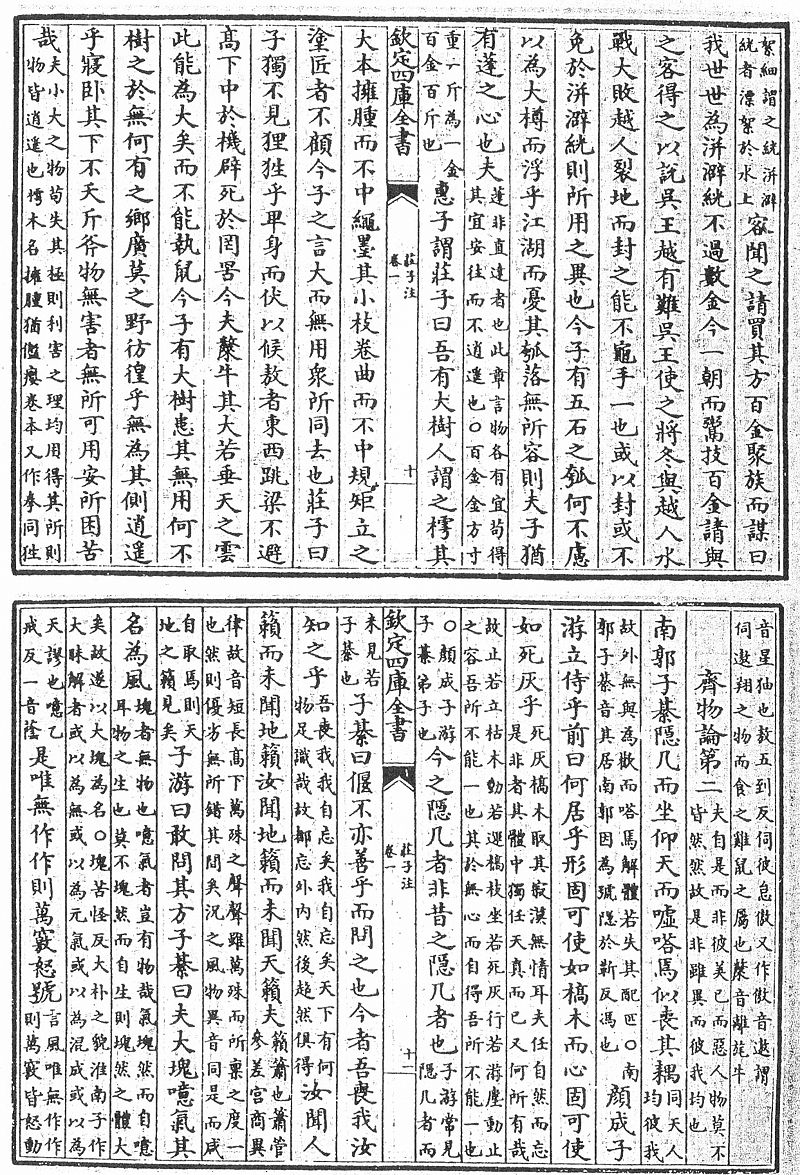 絮細謂之絖洴澼
絖者漂絮於水上
客聞之請買其方百金聚族而謀曰
我世世為洴澼絖不過數金今一朝而鬻技百金請與
之客得之以說吳王越有難吳王使之將冬與越人水
戰大敗越人裂地而封之能不龜手一也或以封或不
免於洴澼絖則所用之異也今子有五石之瓠何不慮
以為大樽而浮乎江湖而憂其瓠落無所容則夫子猶
有蓬之心也夫
蓬非直達者也此章言物各有宜茍得
其宜安往而不逍遙也○百金金方寸
重一斤為一金
百金百斤也
惠子謂莊子曰吾有大樹人謂之樗其
欽定四庫全書
莊子注
卷一
十
大本擁腫而不中繩墨其小枝卷曲而不中規矩立之
塗匠者不顧今子之言大而無用衆所同去也莊子曰
子獨不見狸狌乎卑身而伏以候敖者東西跳梁不避
髙下中於機辟死於罔罟今夫斄牛其大若垂天之雲
此能為大矣而不能執鼠今子有大樹患其無用何不
樹之於無何有之鄉廣莫之野彷徨乎無為其側逍遙
乎寢卧其下不夭斤斧物無害者無所可用安所困苦
哉
夫小大之物茍失其極則利害之理均用得其所則
物皆逍遙也樗木名擁腫猶傴癭卷本又作拳同狌
音星狖也敖五到反伺彼怠傲又作傲音遨謂
伺遨翔之物而食之雞鼠之屬也斄音離旄牛
齊物論第二
夫自是而非彼美已而惡人物莫不
皆然然故是非雖異而彼我均也
南郭子綦隱几而坐仰天而噓嗒焉似喪其耦
同天人
均彼我
故外無與為歡而嗒焉解體若失其配匹○南
郭子綦音其居南郭因為號隱於靳反馮也
顔成子
游立侍乎前曰何居乎形固可使如槁木而心固可使
如死灰乎
死灰槁木取其寂漠無情耳夫任自然而忘
是非者其體中獨任天真而已又何所有哉
故止若立枯木動若運槁枝坐若死灰行若游塵動止
之容吾所不能一也其於無心而自得吾所不能一也
○顔成子游
子綦弟子也
今之隱几者非昔之隱几者也
子游常見
隱几者而
欽定四庫全書
莊子注
卷一
十二
未見若
子綦也
子綦曰偃不亦善乎而問之也今者吾喪我汝
知之乎
吾喪我我自忘矣我自忘矣天下有何
物足識哉故都忘外内然後超然俱得
汝聞人
籟而未聞地籟汝聞地籟而未聞天籟夫
籟簫也簫管
參差宮商異
律故音短長髙下萬殊之聲聲雖萬殊而所稟之度一
也然則優劣無所錯其間矣况之風物異音同是而咸
自取焉則天
地之籟見矣
子游曰敢問其方子綦曰夫大塊噫氣其
名為風
塊者無物也噫氣者豈有物哉氣塊然而自噫
耳物之生也莫不塊然而自生則塊然之體大
矣故遂以大塊為名○塊苦怪反大朴之貌淮南子作
大昧解者或以為無或以為元氣或以為混成或以為
天謬也噫乙
戒反一音蔭
是唯無作作則萬竅怒號
言風唯無作作
則萬竅皆怒動